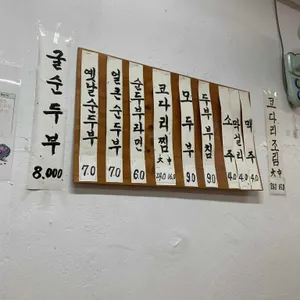 굴순두부
8.000
옛날순두부
70
얼큰순두부
70
순두부라면
60
코다리찜
大 中
모두부
90
두부부침
90
소주
40
막걸리
40
맥주
40
코다리조림
大 中